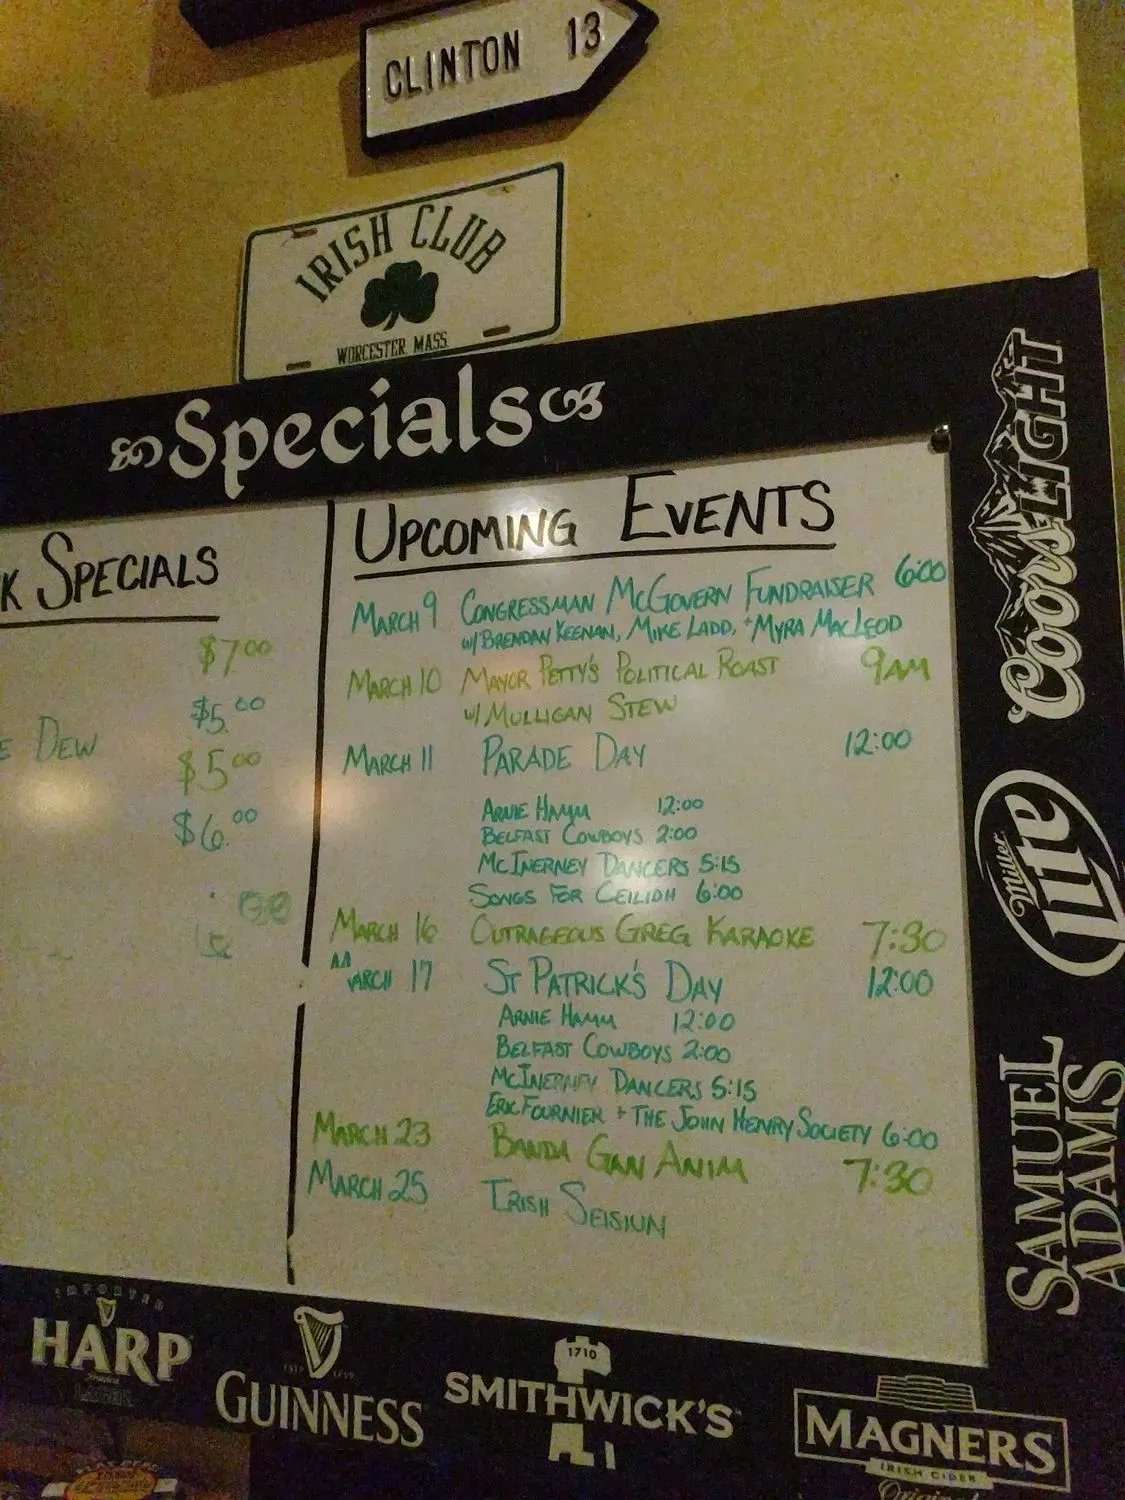 CLINTON 13
IRISH CLUB
WORCESTER MASS.
Specials
K SPECIALS
$7.00
$5.00
E DEW
$5.00
$6.00
UPCOMING EVENTS
MARCH 9 CONGRESSMAN MCGOVERN FUNDRAISER 6:00
W/ BRENDAN KEENAN, MIKE LADD, + MYRA MACLEOD
MARCH 10 MAYOR PETTY'S POLITICAL ROAST 9AM
W/ MULLIGAN STEW
MARCH 11 PARADE DAY 12:00
ARNIE HAMM 12:00
BELFAST COWBOYS 2:00
MCINERNEY DANCERS 5:15
SONGS FOR CEILIDH 6:00
MARCH 16 OUTRAGEOUS GREG KARAOKE 7:30
MARCH 17 ST PATRICK'S DAY 12:00
ARNIE HAMM 12:00
BELFAST COWBOYS 2:00
MCINERNEY DANCERS 5:15
ERIC FOURNIER + THE JOHN HENRY SOCIETY 6:00
MARCH 23 BANDA GAN ANIM 7:30
MARCH 25 IRISH SEISIUN
Coors LIGHT
Miller Lite
SAMUEL
ADAMS
IMPORTED
HARP
LAGER
GUINNESS
1710
SMITHWICK'S
MAGNERS
IRISH CIDER
Original